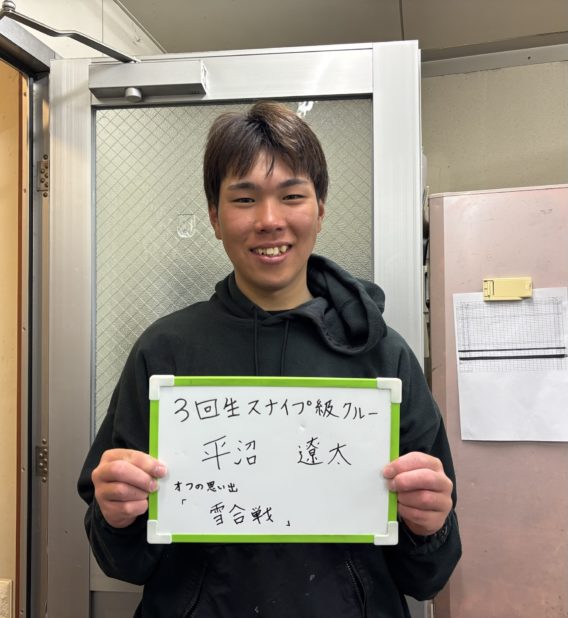 3回生スナイプ級クルー
平沼 遼太
オフの思い出
「 雪合戦 」